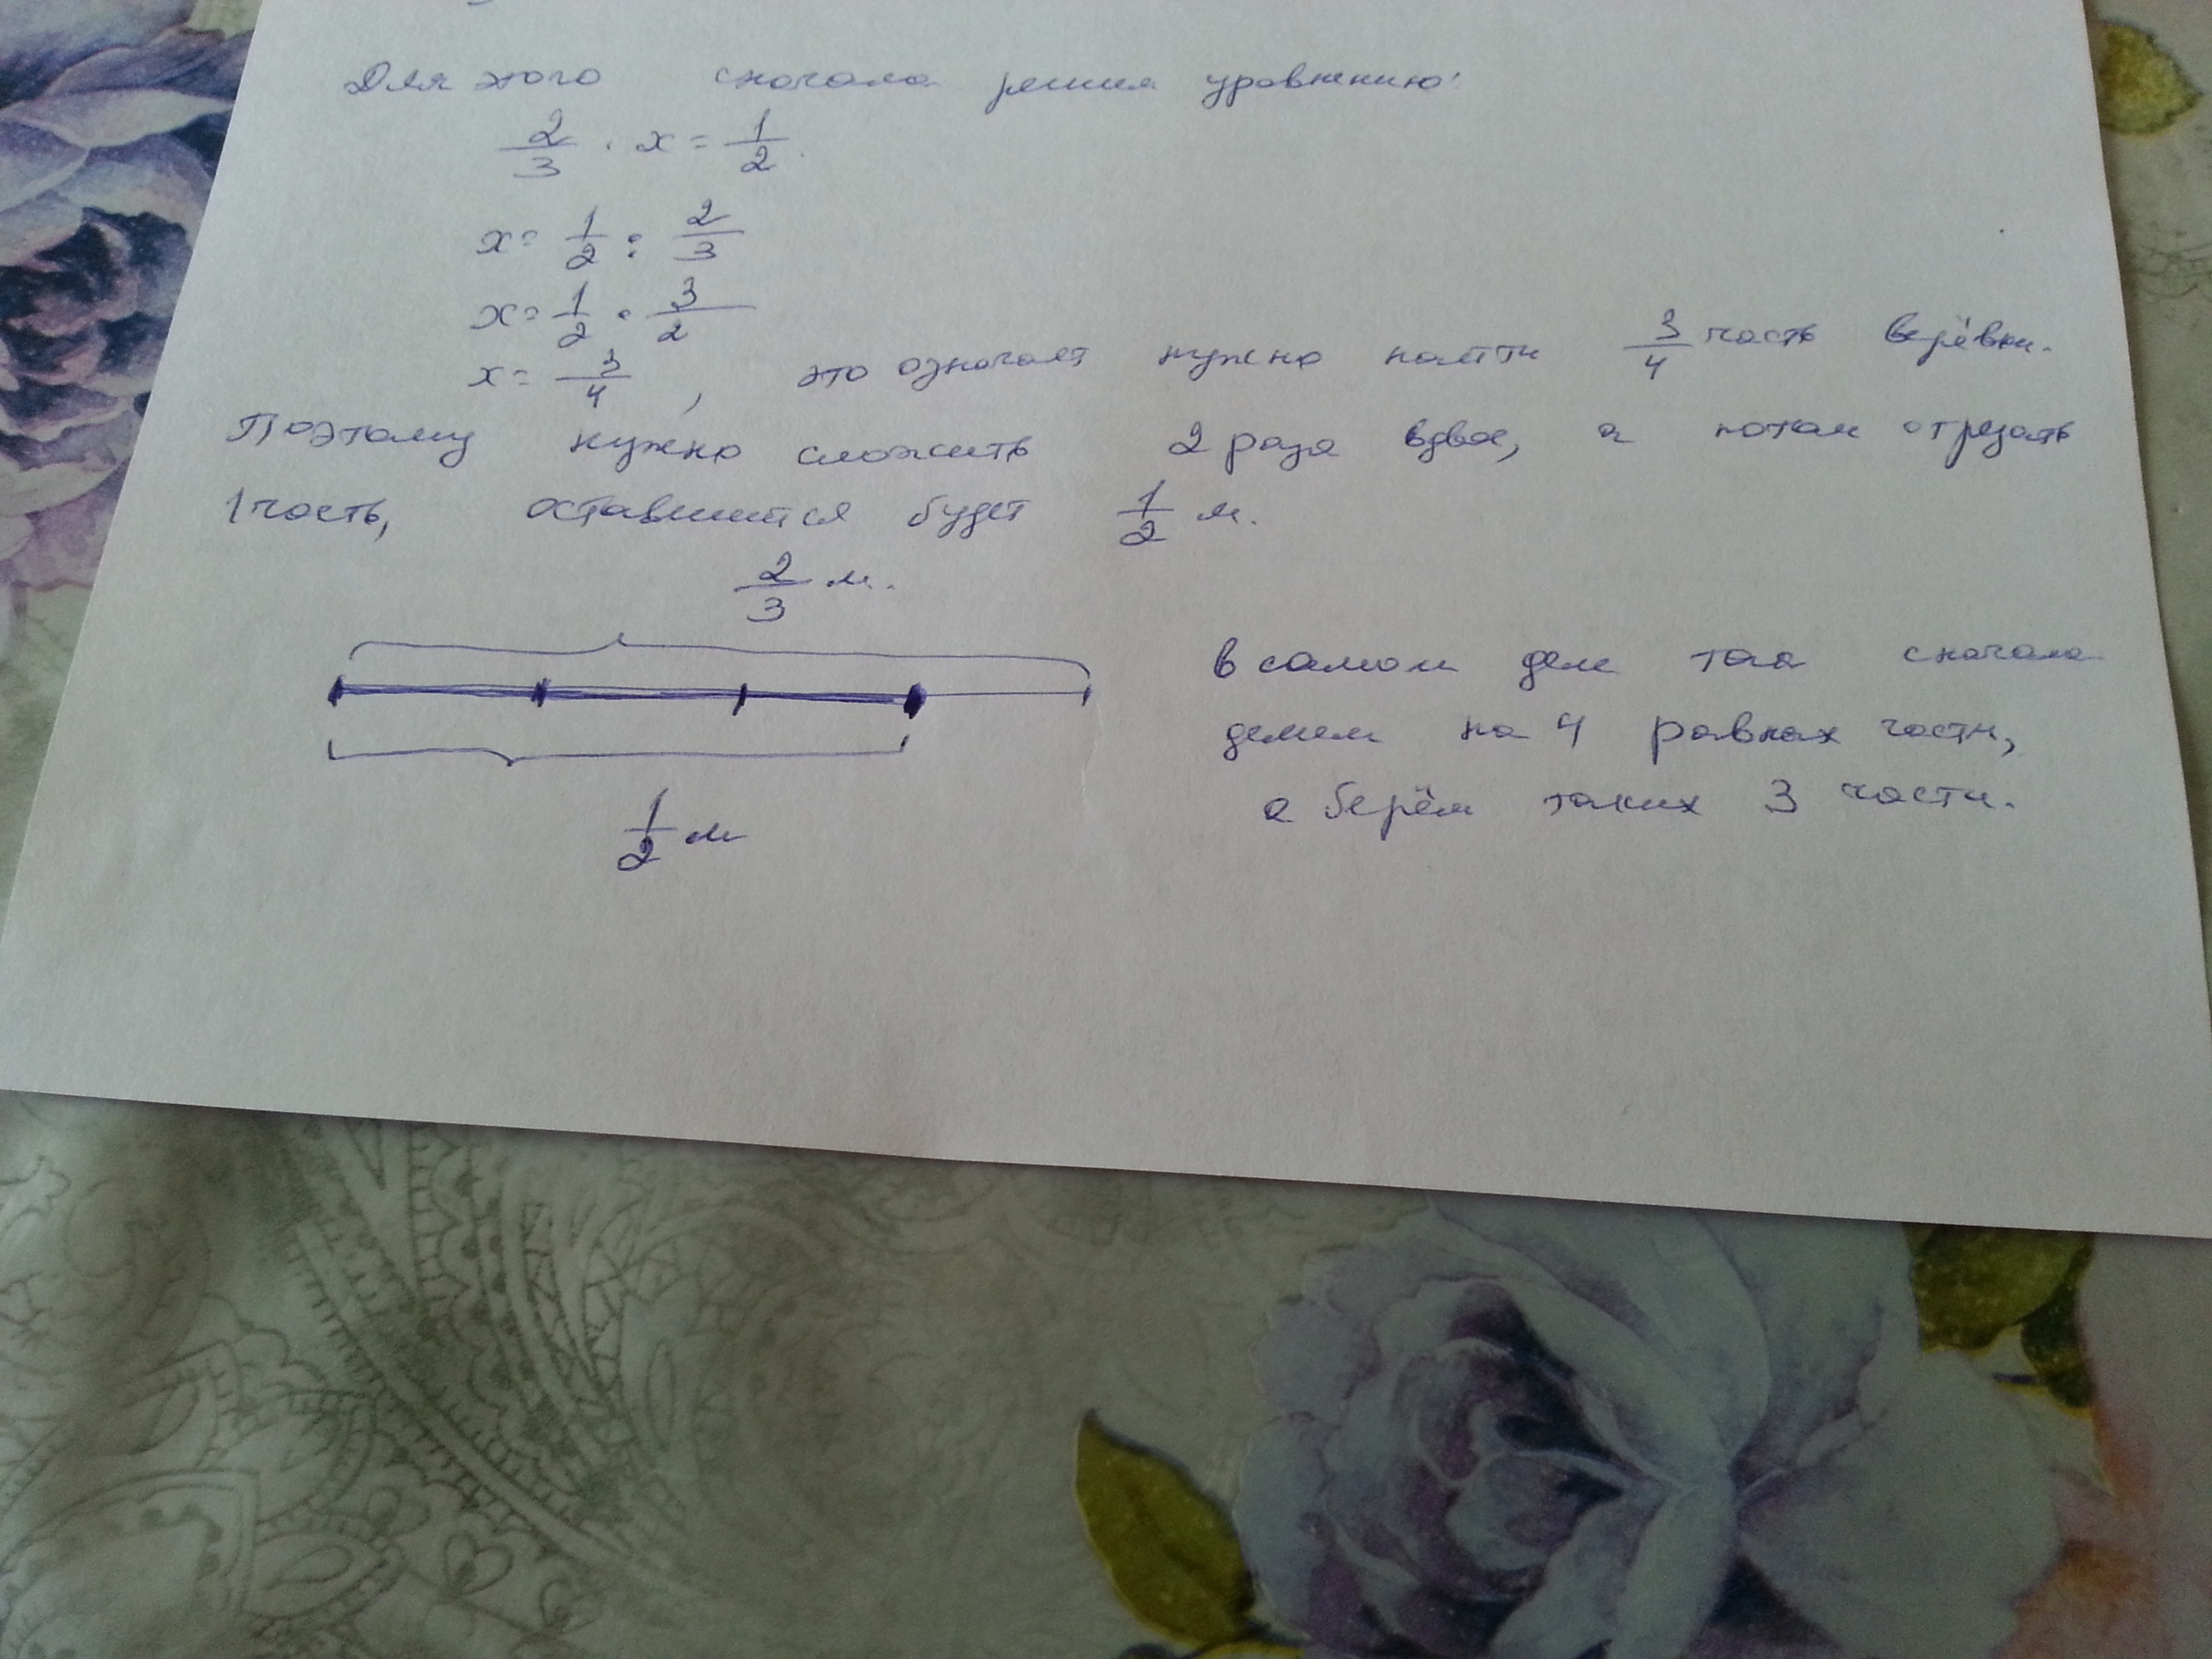 Для этого сначала решим уравнению:
2/3 · x = 1/2.
x = 1/2 : 2/3
x = 1/2 · 3/2
x = 3/4, это означает нужно найти 3/4 часть верёвки.
Поэтому нужно сложить 2 раза вдвое, а потом отрезать
1 часть, оставшиеся будет 1/2 м.
2/3 м.
1/2 м
в самом деле так сначала
делим на 4 равных части,
а берём таких 3 части.